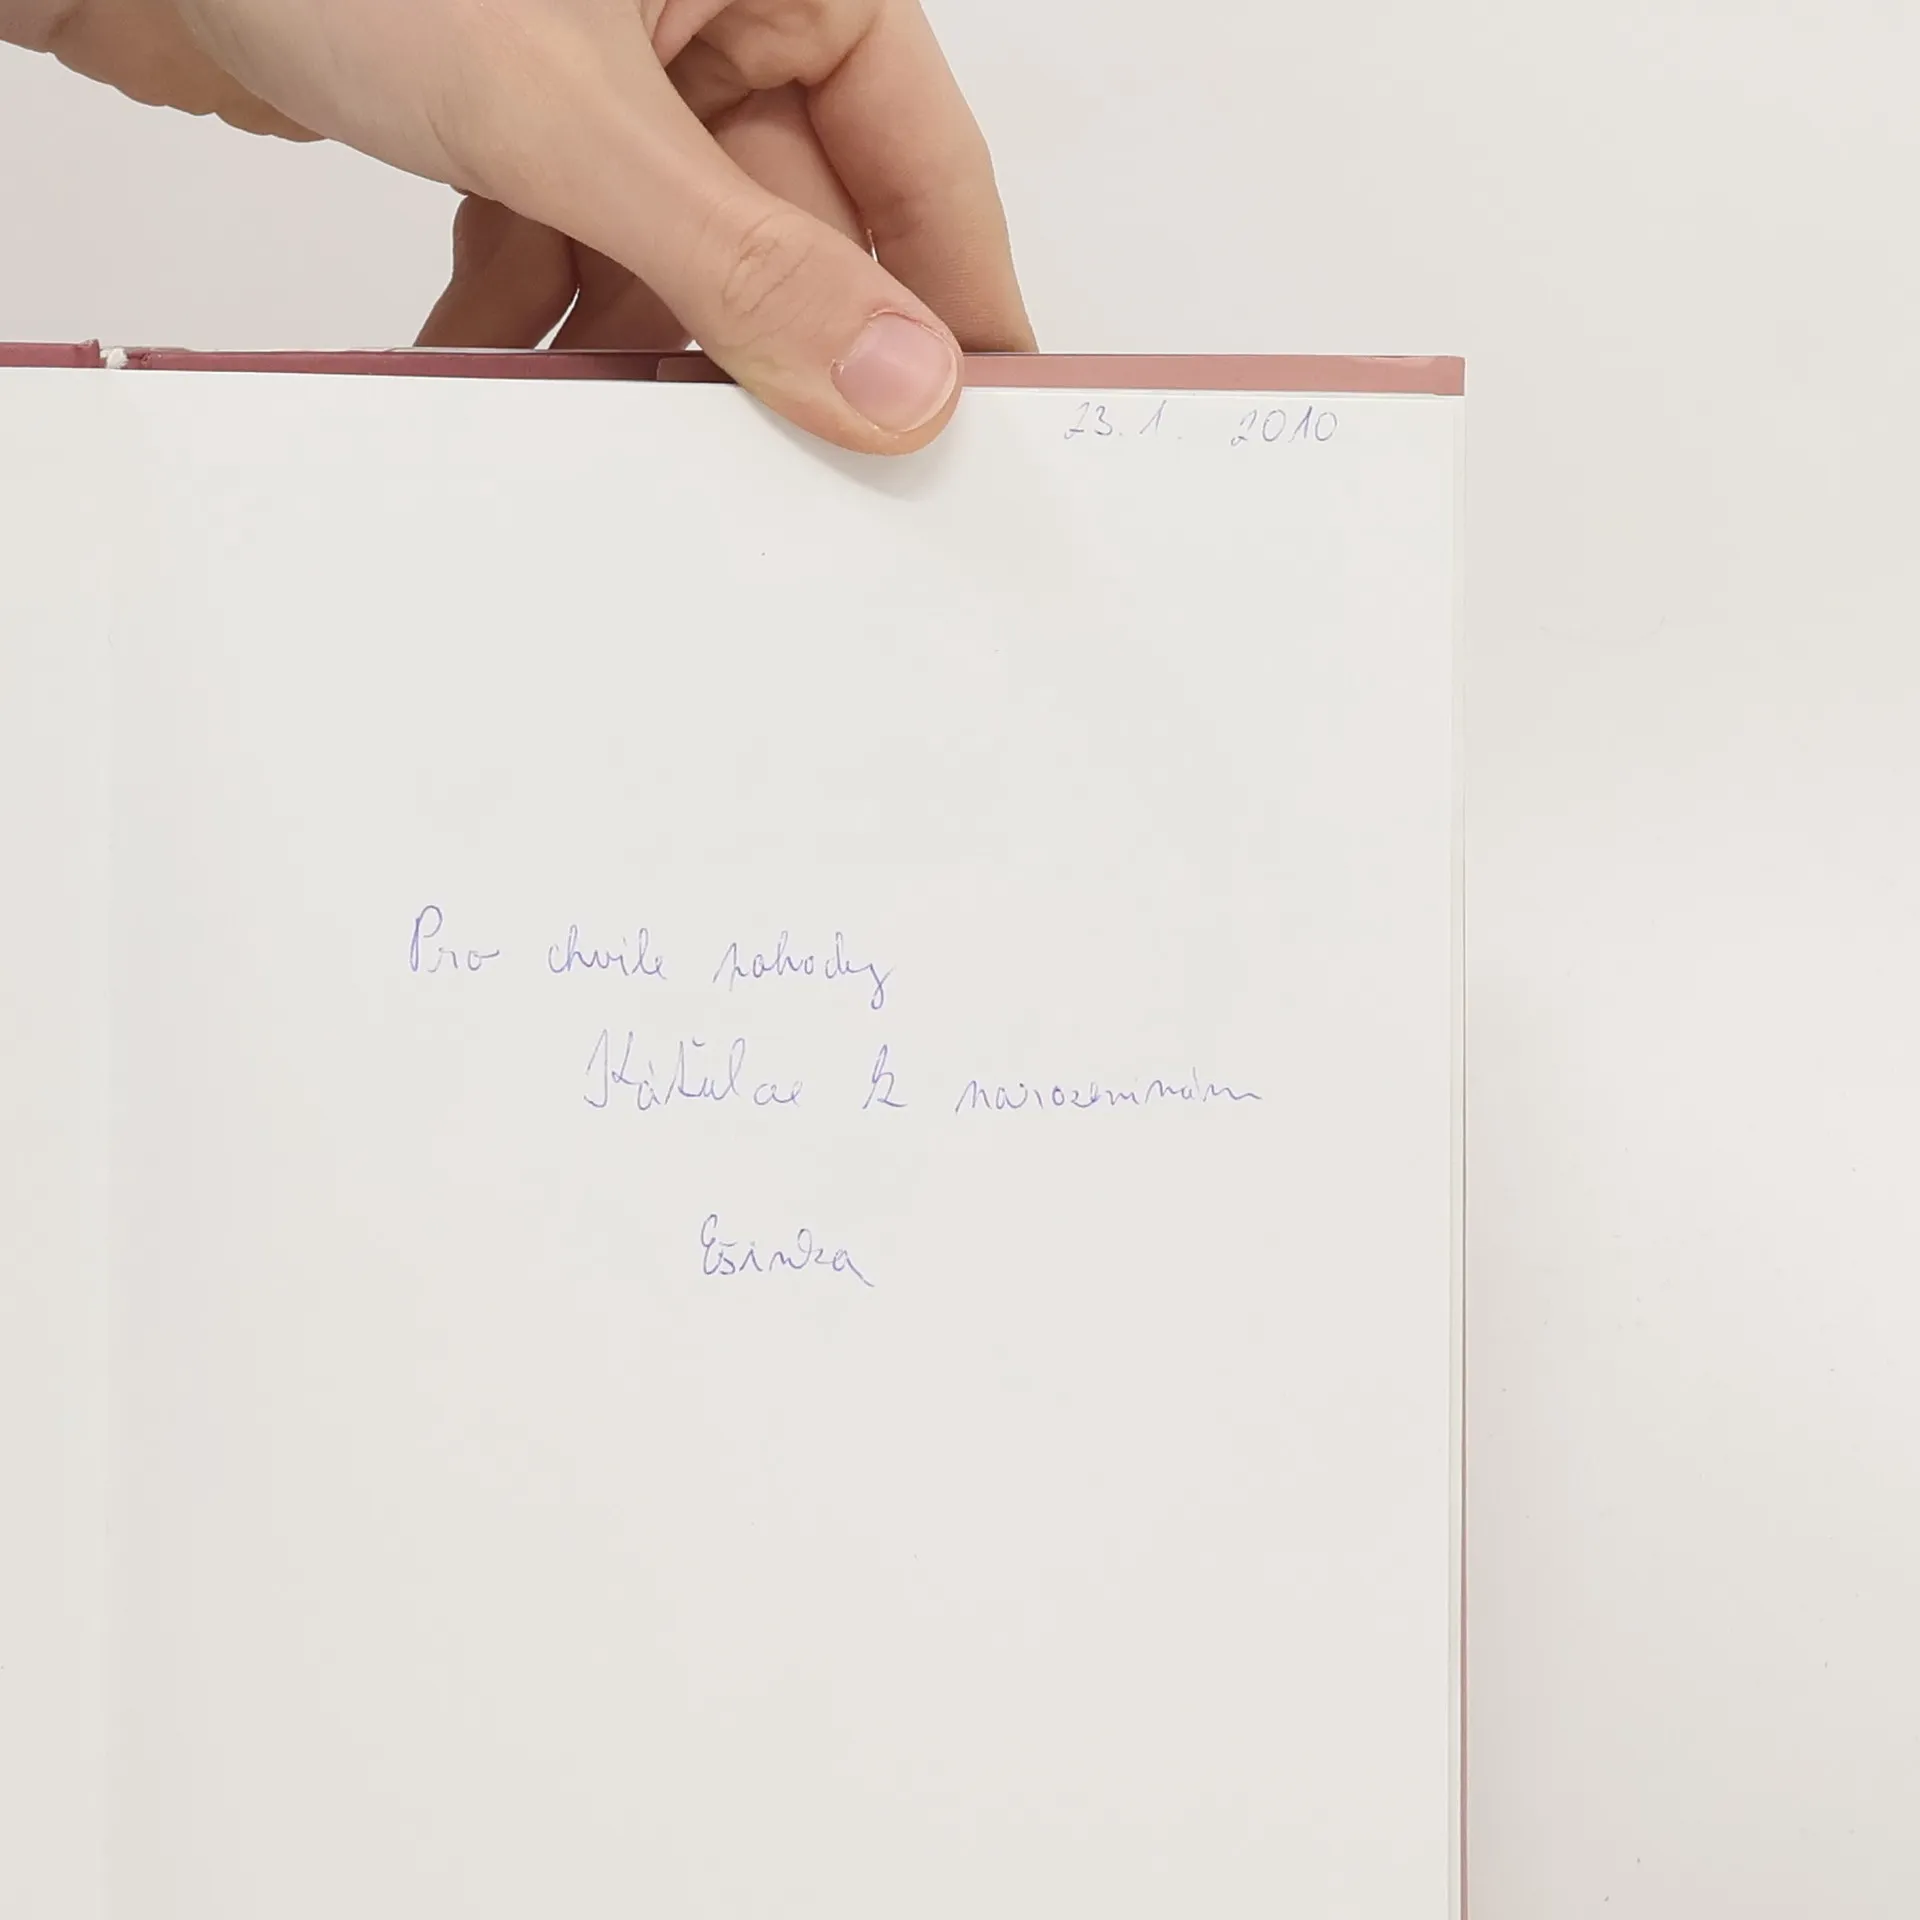 23. 1. 2010
Pro chvile pohody
Káťulce k narozeninám
Ešinka